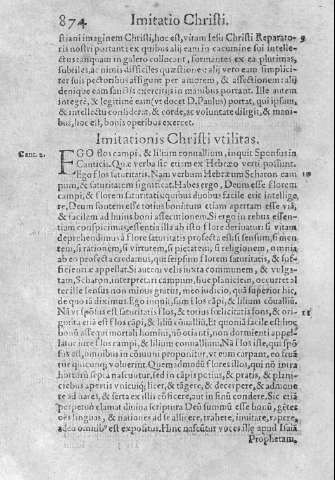 874 Imitatio Christi.
stiani imaginem Christi, hoc est, vitam Iesu Christi Reparato- 9
ris nostri portant: ex quibus alij eam in cacumine sui intelle-
ctus tanquam in galero collocant, formantes ex ea plurimas,
subtiles, ac nimis difficiles quæstiones: alij vero eam simplici-
ter suis pectoribus affigunt per amorem, & assensionem: alij
denique eam suis iis exercitijs in manibus portant. Ille autem
integrè, & legitimè eam (vt docet D. Paulus) portat, qui ipsum,
& intellectu considerat, & corde, ac voluntate diligit, & mani-
bus, hoc est, bonis operibus exercet.
Imitationis Christi vtilitas.
Cant. 2. EGO flos campi, & lilium conuallium, inquit Sponsus in
Canticis. Quæ verba sic etiam ex Hebræo verti possunt.
Ego flos saturitatis. Nam verbum Hebræum Scharon cam 10
pum, & saturitatem significat. Habes ergo, Deum esse florem
campi, & florem saturitatis: quibus duobus facile erit intellige-
re, Deum fontem esse totius bonitatis: etiam apertam esse viã,
& facilem ad huius boni assecutionem. Si ergo in rebus essen-
tiam conspicimus, essentia illa ab isto flore deriuatur: si vitam
deprehendimus à flore saturitatis profecta est: si sensum, si men-
tem, si rationem, si virtutem, si pietatem, si religionem, omnia
ab eo profecta credamus, qui se ipsum florem saturitatis, & suf-
ficientiæ appellat. Si autem velis iuxta communem, & vulga-
tam, Scharon, interpretari campum, siue planiciem, occurret al-
ter ille sensus non minus gratus, meo iudicio, quã superior hic,
de quo iã diximus. Ego inquit, sum flos cãpi, & lilium cõualliũ.
Nã vt põtius est saturitatis flos, & totius fœlicitatis fons, & ori- 11
go: ita etiã est flos cãpi, & lilium cõualliũ. Et quomã facile est hoc
bonũ assequi mortali homini, nõ otianti, non dormienti appel-
latur iure flos campi, & lilium conuallium. Nã flos iste, qui spõ-
sus est, omnibus in cõmuni proponitur, vt eum carpant, eo fruã
tur quicunq; voluerint. Quemadmodũ flores illos, qui nõ intra
hortum septa nascuntur, sed in cãpis potius, & pratis, & plani-
ciebus apertis vnicuiq; licet, & tãgere, & decerpere, & admoue
re ad nares, & serta ex illis conficere, aut in sinũ condere. Sic etiã
perpetuò clamat diuina scriptura Deũ summũ esse bonũ, gẽtes
oẽs linguas, & nationes ad se allicere, trahere, inuitare, rapere,
adeo omnibꝰ est expositus. Hinc nascũtur voces illæ apud Isaiã
Prophetam,